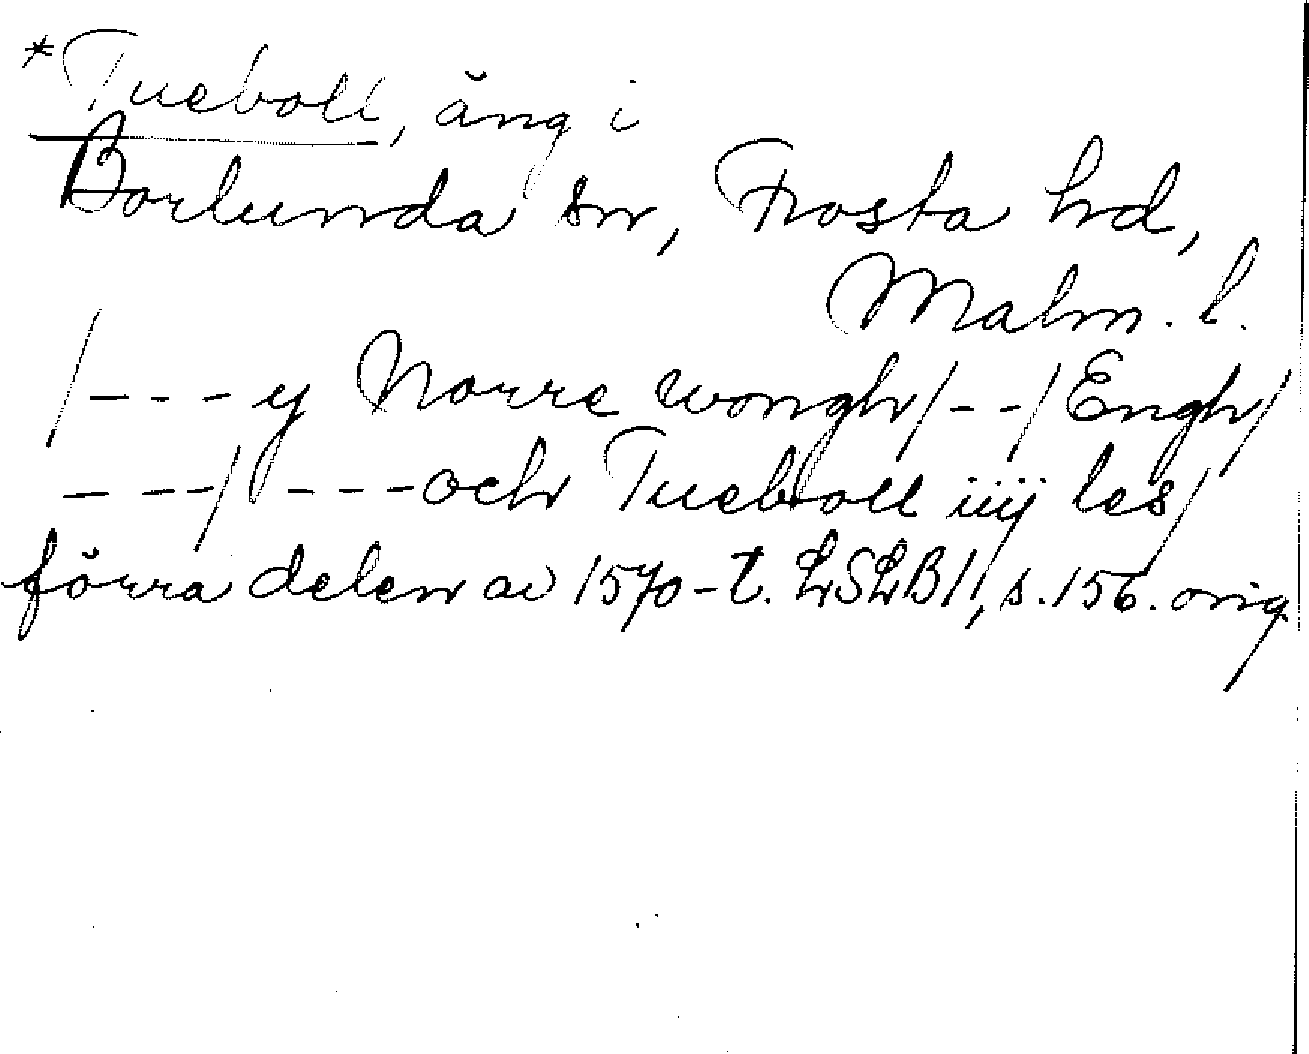 *Tueboll, äng i
Borlunda sn, Frosta hd,
Malm. l.
/---y Norre wongh/--/Engh/
---/ ---och Tueboll iiij les/
förra delen av 1570-t. LSLB II, s. 156. orig.